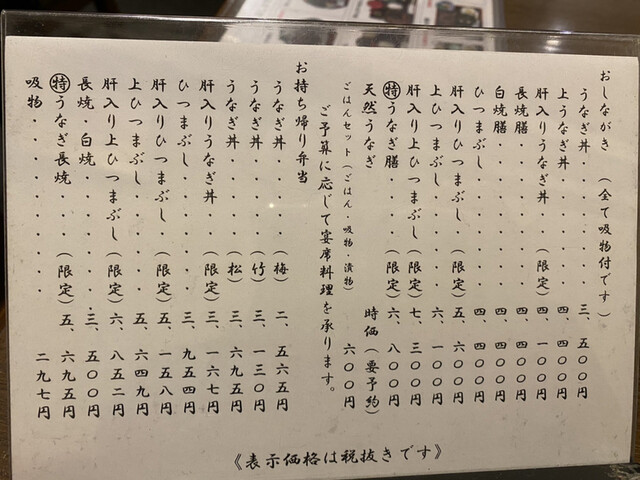 おしながき (全て吸物付です)
うなぎ丼・・・・・三、五〇〇円
上うなぎ丼・・・・四、〇〇〇円
肝入りうなぎ丼・・(限定)四、一〇〇円
長焼膳・・・・・・四、〇〇〇円
白焼膳・・・・・・四、〇〇〇円
ひつまぶし・・・・四、〇〇〇円
肝入りひつまぶし・(限定)五、一〇〇円
上ひつまぶし・・・六、〇〇〇円
肝入り上ひつまぶし(限定)七、三〇〇円
㊕うなぎ膳・・・・(限定)六、八〇〇円
天然うなぎ 時価(要予約)
ごはんセット(ごはん・吸物・漬物) 六〇〇円
ご予算に応じて宴席料理を承ります。
お持ち帰り弁当
うなぎ丼・・・・(梅)二、五六五円
うなぎ丼・・・・(竹)三、一三〇円
うなぎ丼・・・・(松)三、六九五円
肝入りうなぎ丼・・(限定)三、一六七円
ひつまぶし・・・・三、九五四円
肝入りひつまぶし・(限定)五、一五八円
上ひつまぶし・・・五、六四九円
肝入り上ひつまぶし(限定)六、八五二円
長焼・白焼・・・・三、五〇〇円
㊕うなぎ長焼・・・(限定)五、六九五円
吸物・・・・・・・二九七円
《表示価格は税抜きです》